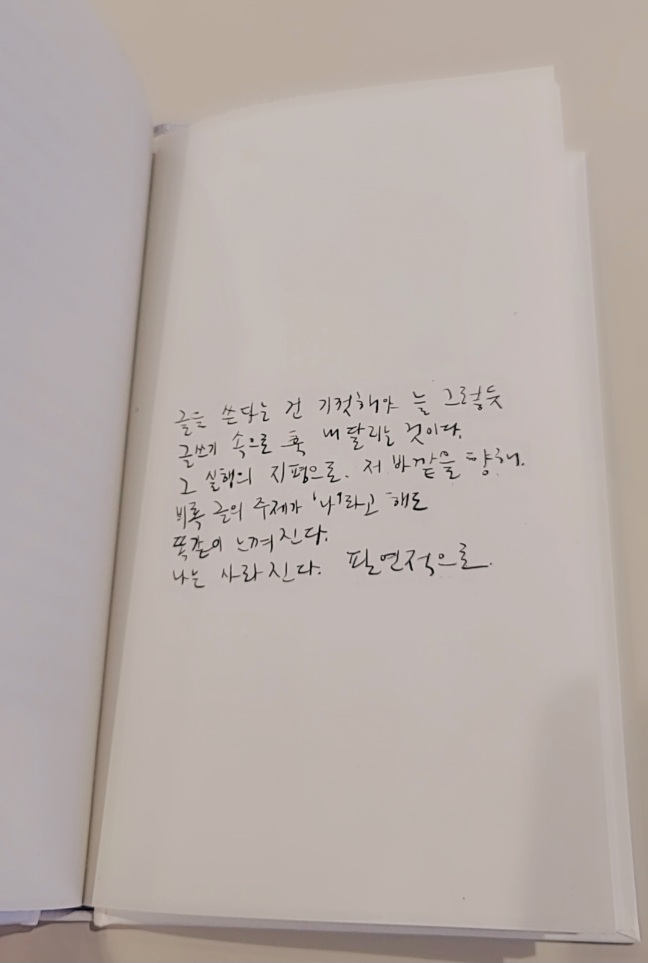 글을 쓴다는 건 기껏해야 늘 그렇듯
글쓰기 속으로 훅 내달리는 것이다.
그 실행의 지평으로. 저 바깥을 향해.
비록 글의 주제가 '나'라고 해도
똑같이 느껴진다.
나는 사라진다. 필연적으로.